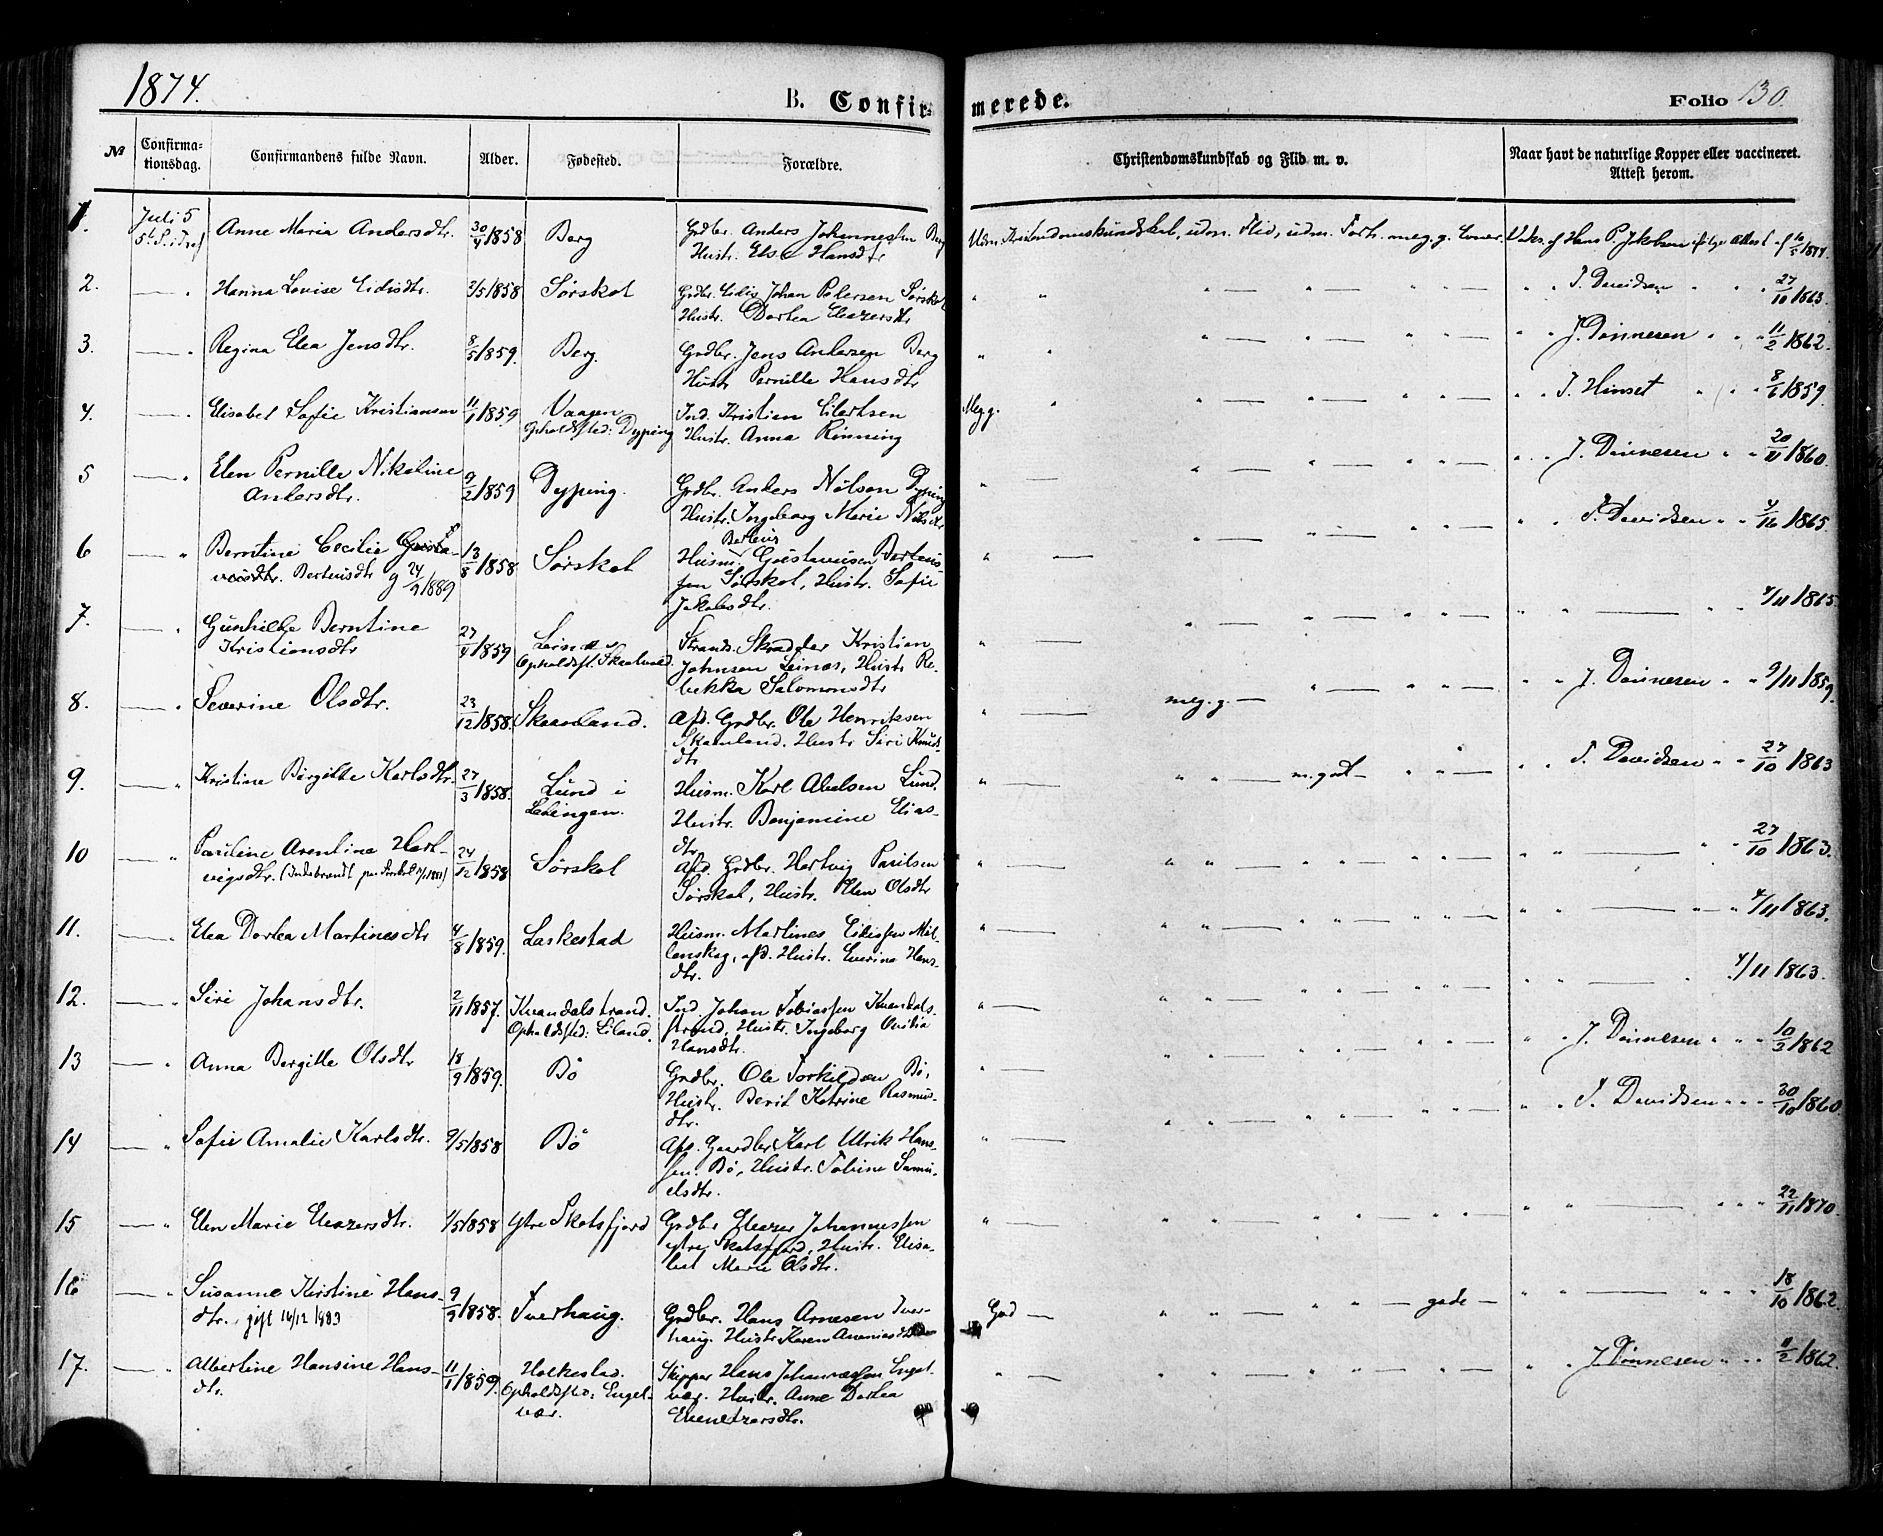 1874.
B. Confir-
merede.
Folio 130.
№
Confirma-
tionsdag.
Confirmandens fulde Navn.
Alder.
Fødested.
Forældre.
Christendomskundskab og Flid m. v.
Naar havt de naturlige Kopper eller vaccineret.
Attest herom.
1.
Juli 5
Anne Maria Andersdtr.
30/4 1858
Berg
Grdbr. Anders Johannessen Berg
Hustr. Elsa Hansdtr
Udm. Kristendomskundskab, udm. Flid, udm. Forh. meg. g. Evner.
Vaks. af Hans P. Jakobsen ifølge Attest af 16/5 1874.
2.
Hanna Lovise Eidisdtr.
2/5 1858
Sørskot
Grdbr. Eidis Johan Petersen Sørskot
Hustr. Dortea Eleazersdtr
" "
" — " — " " —
" " T. Davidsen " " 27/10 1863.
3.
Regina Elea Jensdtr.
8/5 1859.
Berg.
Grdbr. Jens Andersen Berg
Hustr Pernille Hansdtr
" "
" — " — " " —
" " J. Dønnesen " " 11/2 1862.
4.
Elisabet Sofie Kristiansen
11/1 1859
Vaagen
Opholdsted: Dyping
Ind. Kristian Eilertsen
Hustr. Anna Rønning
Meg g. "
" — " — " " —
" " J. Hunset " " 8/6 1859.
5
Elen Pernille Nikoline
Andersdtr.
9/2 1859
Dyping.
Grdbr. Anders Nilsen Dyping
Hustr. Ingeborg Marie Nilsdtr
" —
" — " — " " —
" " J. Dønnesen " " 20/11 1860.
6
Berntine Cecilie Gusta-
vusdtr. Berteusdtr g 24/9 1889
13/8 1858
Sørskot
Berteus
Husm. Gustavusen Berteus-
sen Sørskot, Hustr. Sofie
Jakobsdtr.
" —
" — " — " " —
" " T. Davidsen " " 1865.
7.
Gunhilde Berntine
Kristiansdtr
27/4 1859
Leines
Opholdsst. Skaanland
Strands. Skrædder Kristian
Johnsen Leines, Hustr Re-
bekka Salomonsdtr
" —
" — " — " " —
" " — " " 4/11 1865.
8.
Severine Olsdtr.
23/12 1858.
Skaanland.
Afd. Grdbr. Ole Henriksen
Skaanland. Hustr Siri Knuds-
dtr
" —
meg. g. — " — " " —
" " J. Dønnesen " " 9/11 1859.
9.
Kristine Birgitte Karlsdtr.
27/3 1858.
Lund i
Ledingen.
Husm. Karl Abelsen Lund.
Hustr. Benjamine Elias-
dtr.
" —
" " — m. godt — " " —
" " T. Davidsen " " 27/10 1863
10
Pauline Arentine Hart-
vigsdtr.
24/12 1858
Sørskot
Afd. Grdbr. Hartvig Paulsen
Sørskot, Hustr. Elen Olsdtr
" —
" " — " — " " —
" " — " " 27/10 1863.
11.
Elea Dortea Martinesdtr
4/8 1859.
Laskestad
Husm. Martines Eidissen Møl-
lenskog, afd. Hustr. Everine Hans-
dtr.
" —
" " — " " — " " —
" " — " " 4/11 1863.
12.
Siri Johansdtr.
2/11 1857.
Kvandalstrand.
Opholdsted: Eiland.
Ind. Johan Tobiassen Kvandals-
strand, Hustr. Ingeborg
Hansdtr.
" —
" " — " " — " " —
" " — " 4/11 1863.
13
Anna Bergitte Olsdtr
18/9 1859.
Bø
Grdbr. Ole Torkildsen Bø,
Hustr. Berit Katrine Rasmus-
dtr.
" —
" — " " — " " —
" " J. Dønnesen " " " 10/3 1862
14
Sofie Amalie Karlsdtr.
9/5 1858
Bø
Afd. Gaardbr Karl Ulrik Hans-
sen. Bø, Hustr. Tobine Samu-
elsdtr.
" —
" " — " " — " " —
" " T. Davidsen " " " 30/10 1860
15
Elen Marie Eleazersdtr.
1/5 1858
Ytre Skotsfjord
Grdbr Eleazer Johannessen
ytre Skotsfjord, Hustr. Elisa-
bet Marie Olsdtr.
" —
" " — " " — " " —
" " — " " " 22/11 1870.
16
Susanne Kirstine Hans-
dtr. gift 16/12 1883
9/9 1858.
Tverhaug.
Grdbr. Hans Arnesen Tver-
haug. Hustr Karen
God —
" " — " " — gode —
" " — " " " 18/10 1862.
17.
Albertine Hansine Hans-
dtr.
11/1 1859.
Holkestad.
Opholdssted: Engel-
vær.
Skipper Hans Johannessen Engel-
vær. Hustr. Anne Dortea
Ebenetzersdtr.
" —
" " — " " — " " —
" " J. Dønnesen " " 11/2 1862.